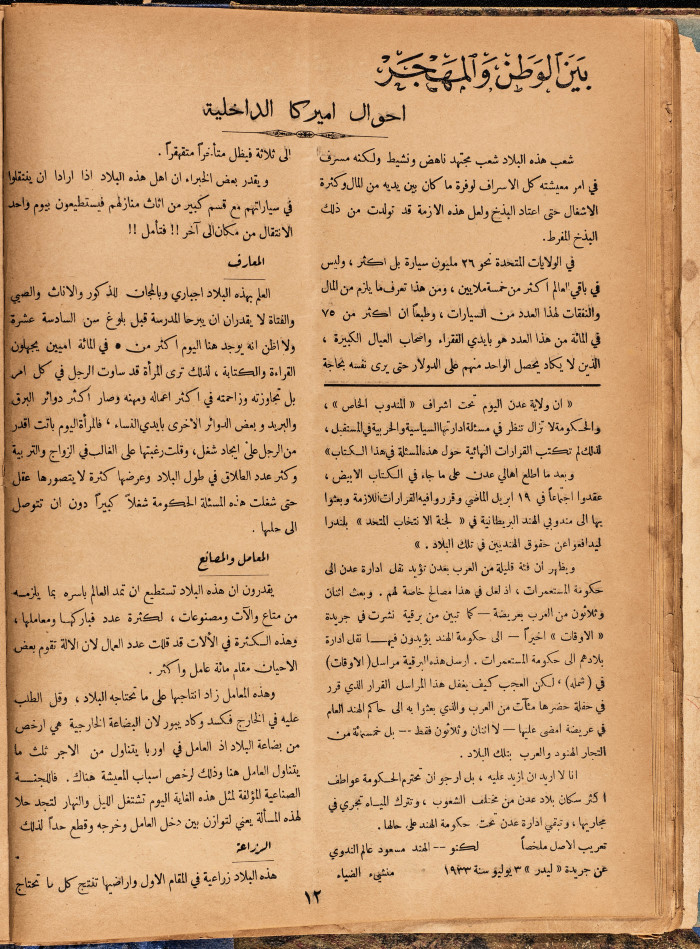 بَينَ الوَطَن وَالمَهْجَرْ
احوال اميركا الداخلية
شعب هذه البلاد شعب مجتهد ناهض ونشيط ولكنه مسرف
في امر معيشته كل الاسراف لوفرة ما كان بين يديه من المال وكثرة
الاشغال حتى اعتاد البذخ ولعل هذه الازمة قد تولدت من ذلك
البذخ المفرط.
في الولايات المتحدة نحو ٢٦ مليون سيارة بل اكثر ، وليس
في باقي العالم اكثر من خمسة ملايين ، ومن هذا تعرف ما يلزم من المال
والنفقات لهذا العدد من السيارات ، وطبعاً ان اكثر من ٧٥
في المائة من هذا العدد هو بايدي الفقراء واصحاب العيال الكبيرة ،
الذين لا يكاد يحصل الواحد منهم على الدولار حتى يرى نفسه بحاجة
« ان ولاية عدن اليوم تحت اشراف « المندوب الخاص » ،
والحكومة لا تزال تنظر في مسئلة ادارتها السياسية والحربية في المستقبل ،
لذلك لم تكتب القرارات النهائية حول هذه المسئلة في هذا الكتاب»
وبعد ما اطلع اهالي عدن على ما جاء في الكتاب الابيض ،
عقدوا اجتماعاً في ١٩ ابريل الماضي وقرروا فيه القرارات اللازمة وبعثوا
بها الى مندوبي الهند البريطانية في « لجنة الانتخاب المتحد » بلندرا
ليدافعوا عن حقوق الهنديين في تلك البلاد . »
ويظهر ان فئة قليلة من العرب بعدن تؤيد نقل ادارة عدن الى
حكومة المستعمرات ، اذ لعل في هذا مصالح خاصة لهم . وبعث اثنان
وثلاثون من العرب بعريضة — كما تبين من برقية نشرت في جريدة
« الاوقات » اخيراً — الى حكومة الهند يؤيدون فيها نقل ادارة
بلادهم الى حكومة المستعمرات . ارسل هذه البرقية مراسل (الاوقات)
في (شمله) ، لكن العجب كيف يغفل هذا المراسل القرار الذي قرر
في حفلة حضرها مئآت من العرب والذي بعثوا به الى حاكم الهند العام
في عريضة امضى عليها — لا اثنان وثلاثون فقط -- بل خمسمائة من
التجار الهنود والعرب بتلك البلاد .
انا لا اريد ان ازيد عليه ، بل ارجو ان تحترم الحكومة عواطف
اكثر سكان بلاد عدن من مختلف الشعوب ، وتترك المياه تجري في
مجاريها ، وتبقي ادارة عدن تحت حكومة الهند على حالها .
تعريب الاصل ملخصاً لكنو -- الهند مسعود عالم الندوي
عن جريدة « ليدر » ٣ يوليو سنة ١٩٣٣ منشيء الضياء
الى ثلاثة فيظل متأخراً متقهقراً .
ويقدر بعض الخبراء ان اهل هذه البلاد اذا ارادا ان يفتقلوا
في سياراتهم مع قسم كبير من اثاث منازلهم فيستطيعون بيوم واحد
الانتقال من مكان الى آخر !! فتأمل !!
المعارف
العلم بهذه البلاد اجباري وبالمجان للذكور والاناث والصبي
والفتاة لا يقدران ان يبرحا المدرسة قبل بلوغ سن السادسة عشرة
ولا اظن انه يوجد هنا اليوم اكثر من ٥ في المائة اميين يجهلون
القراءة والكتابة ، لذلك ترى المرأة قد ساوت الرجل في كل امر
بل تجاوزته وزاحمته في اكثر اعماله ومهنه وصار اكثر دوائر البرق
والبريد وبعض الدوائر الاخرى بايدي النساء ، فالمرأة اليوم باتت اقدر
من الرجل على ايجاد شغل ، وقلت رغبتها على الغالب في الزواج والتربية
وكثر عدد الطلاق في طول البلاد وعرضها كثرة لا يتصورها عقل
حتى شغلت هذه المسئلة الحكومة شغلاً كبيراً دون ان تتوصل
الى حلها .
المعامل والمصانع
يقدرون ان هذه البلاد تستطيع ان تمد العالم باسره بما يلزمه
من متاع وآلات ومصنوعات ، لكثرة عدد فباركها ومعاملها ،
وهذه الكثرة في الألات قد قللت عدد العمال لان الالة تقوم بعض
الاحيان مقام مائة عامل واكثر .
وهذه المعامل زاد انتاجها على ما تحتاجه البلاد ، وقل الطلب
عليه في الخارج فكسد وكاد يبور لان البضاعة الخارجية هي ارخص
من بضاعة البلاد اذ العامل في اوربا يتناول من الاجر ثلث ما
يتناول العامل هنا وذلك لرخص اسباب المعيشة هناك . فاللجنة
الصناعية المؤلفة لمثل هذه الغاية اليوم تشتغل الليل والنهار لتجد حلا
لهذه المسألة يعني لتوازن بين دخل العامل وخرجه وقطع حداً لذلك .
الزراعة
هذه البلاد زراعية في المقام الاول واراضيها تفتج كل ما تحتاج
١٢